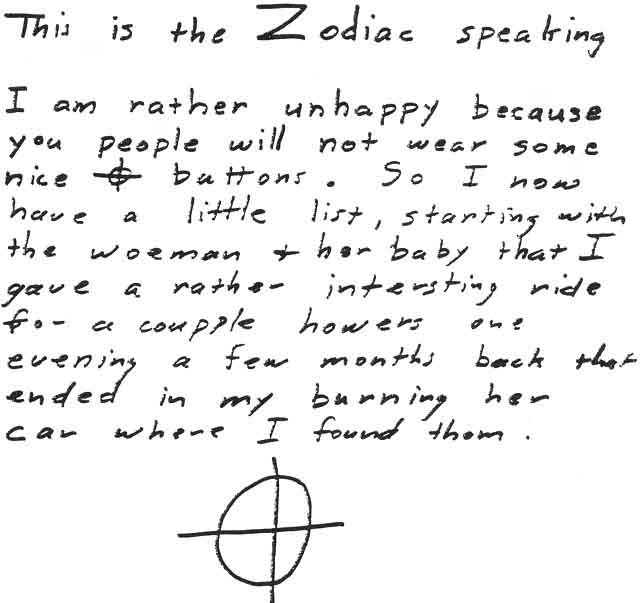 This is the Zodiac speaking
I am rather unhappy because
you people will not wear some
nice ⌖ buttons. So I now
have a little list, starting with
the woeman + her baby that I
gave a rather intersting ride
for a coupple howers one
evening a few months back that
ended in my burning her
car where I found them.